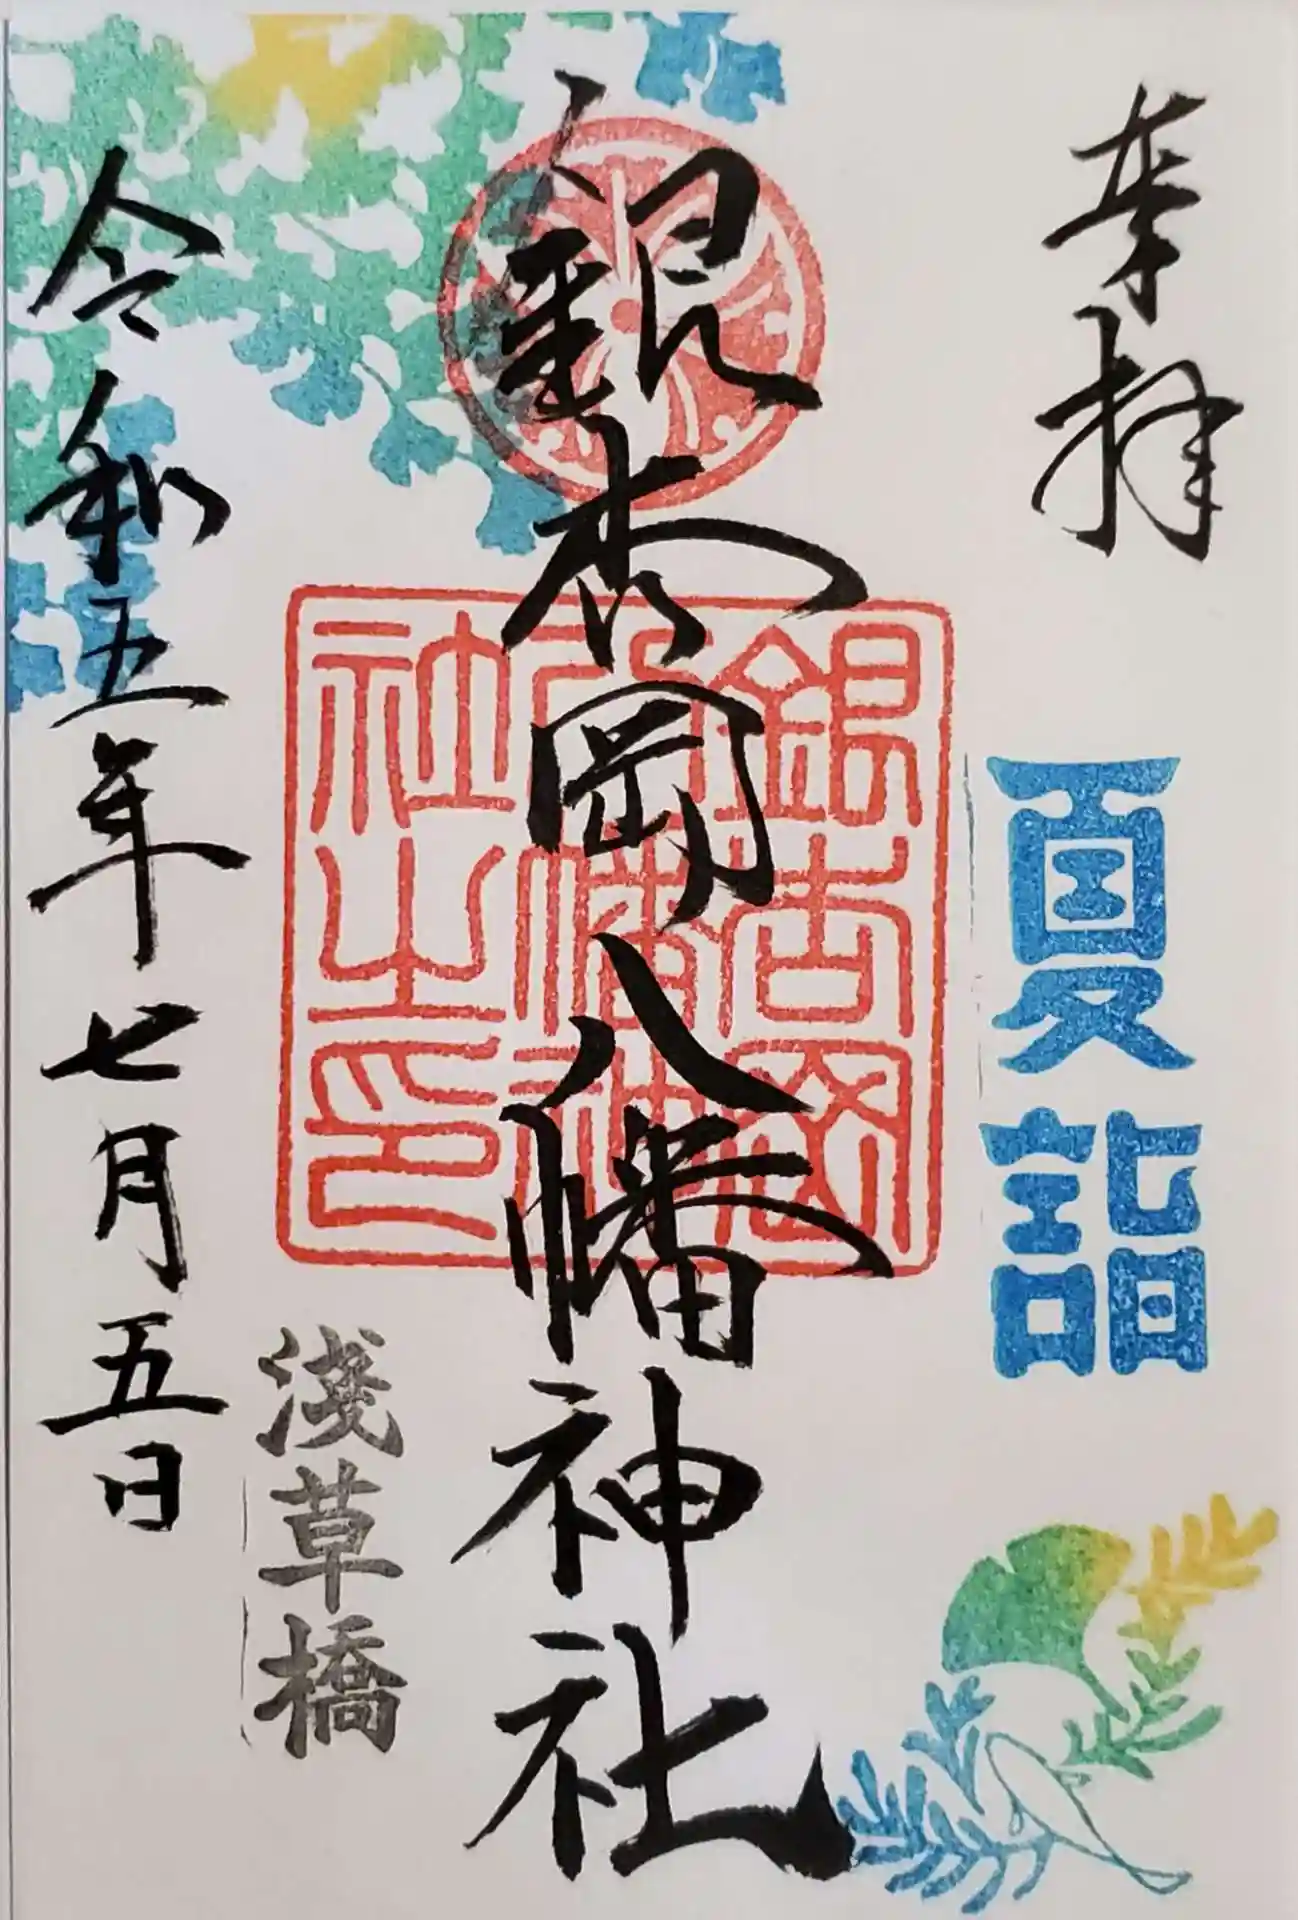 奉拝
夏詣
銀杏岡八幡神社
銀杏岡
八幡神
社之印
淺草橋
令和五年七月五日